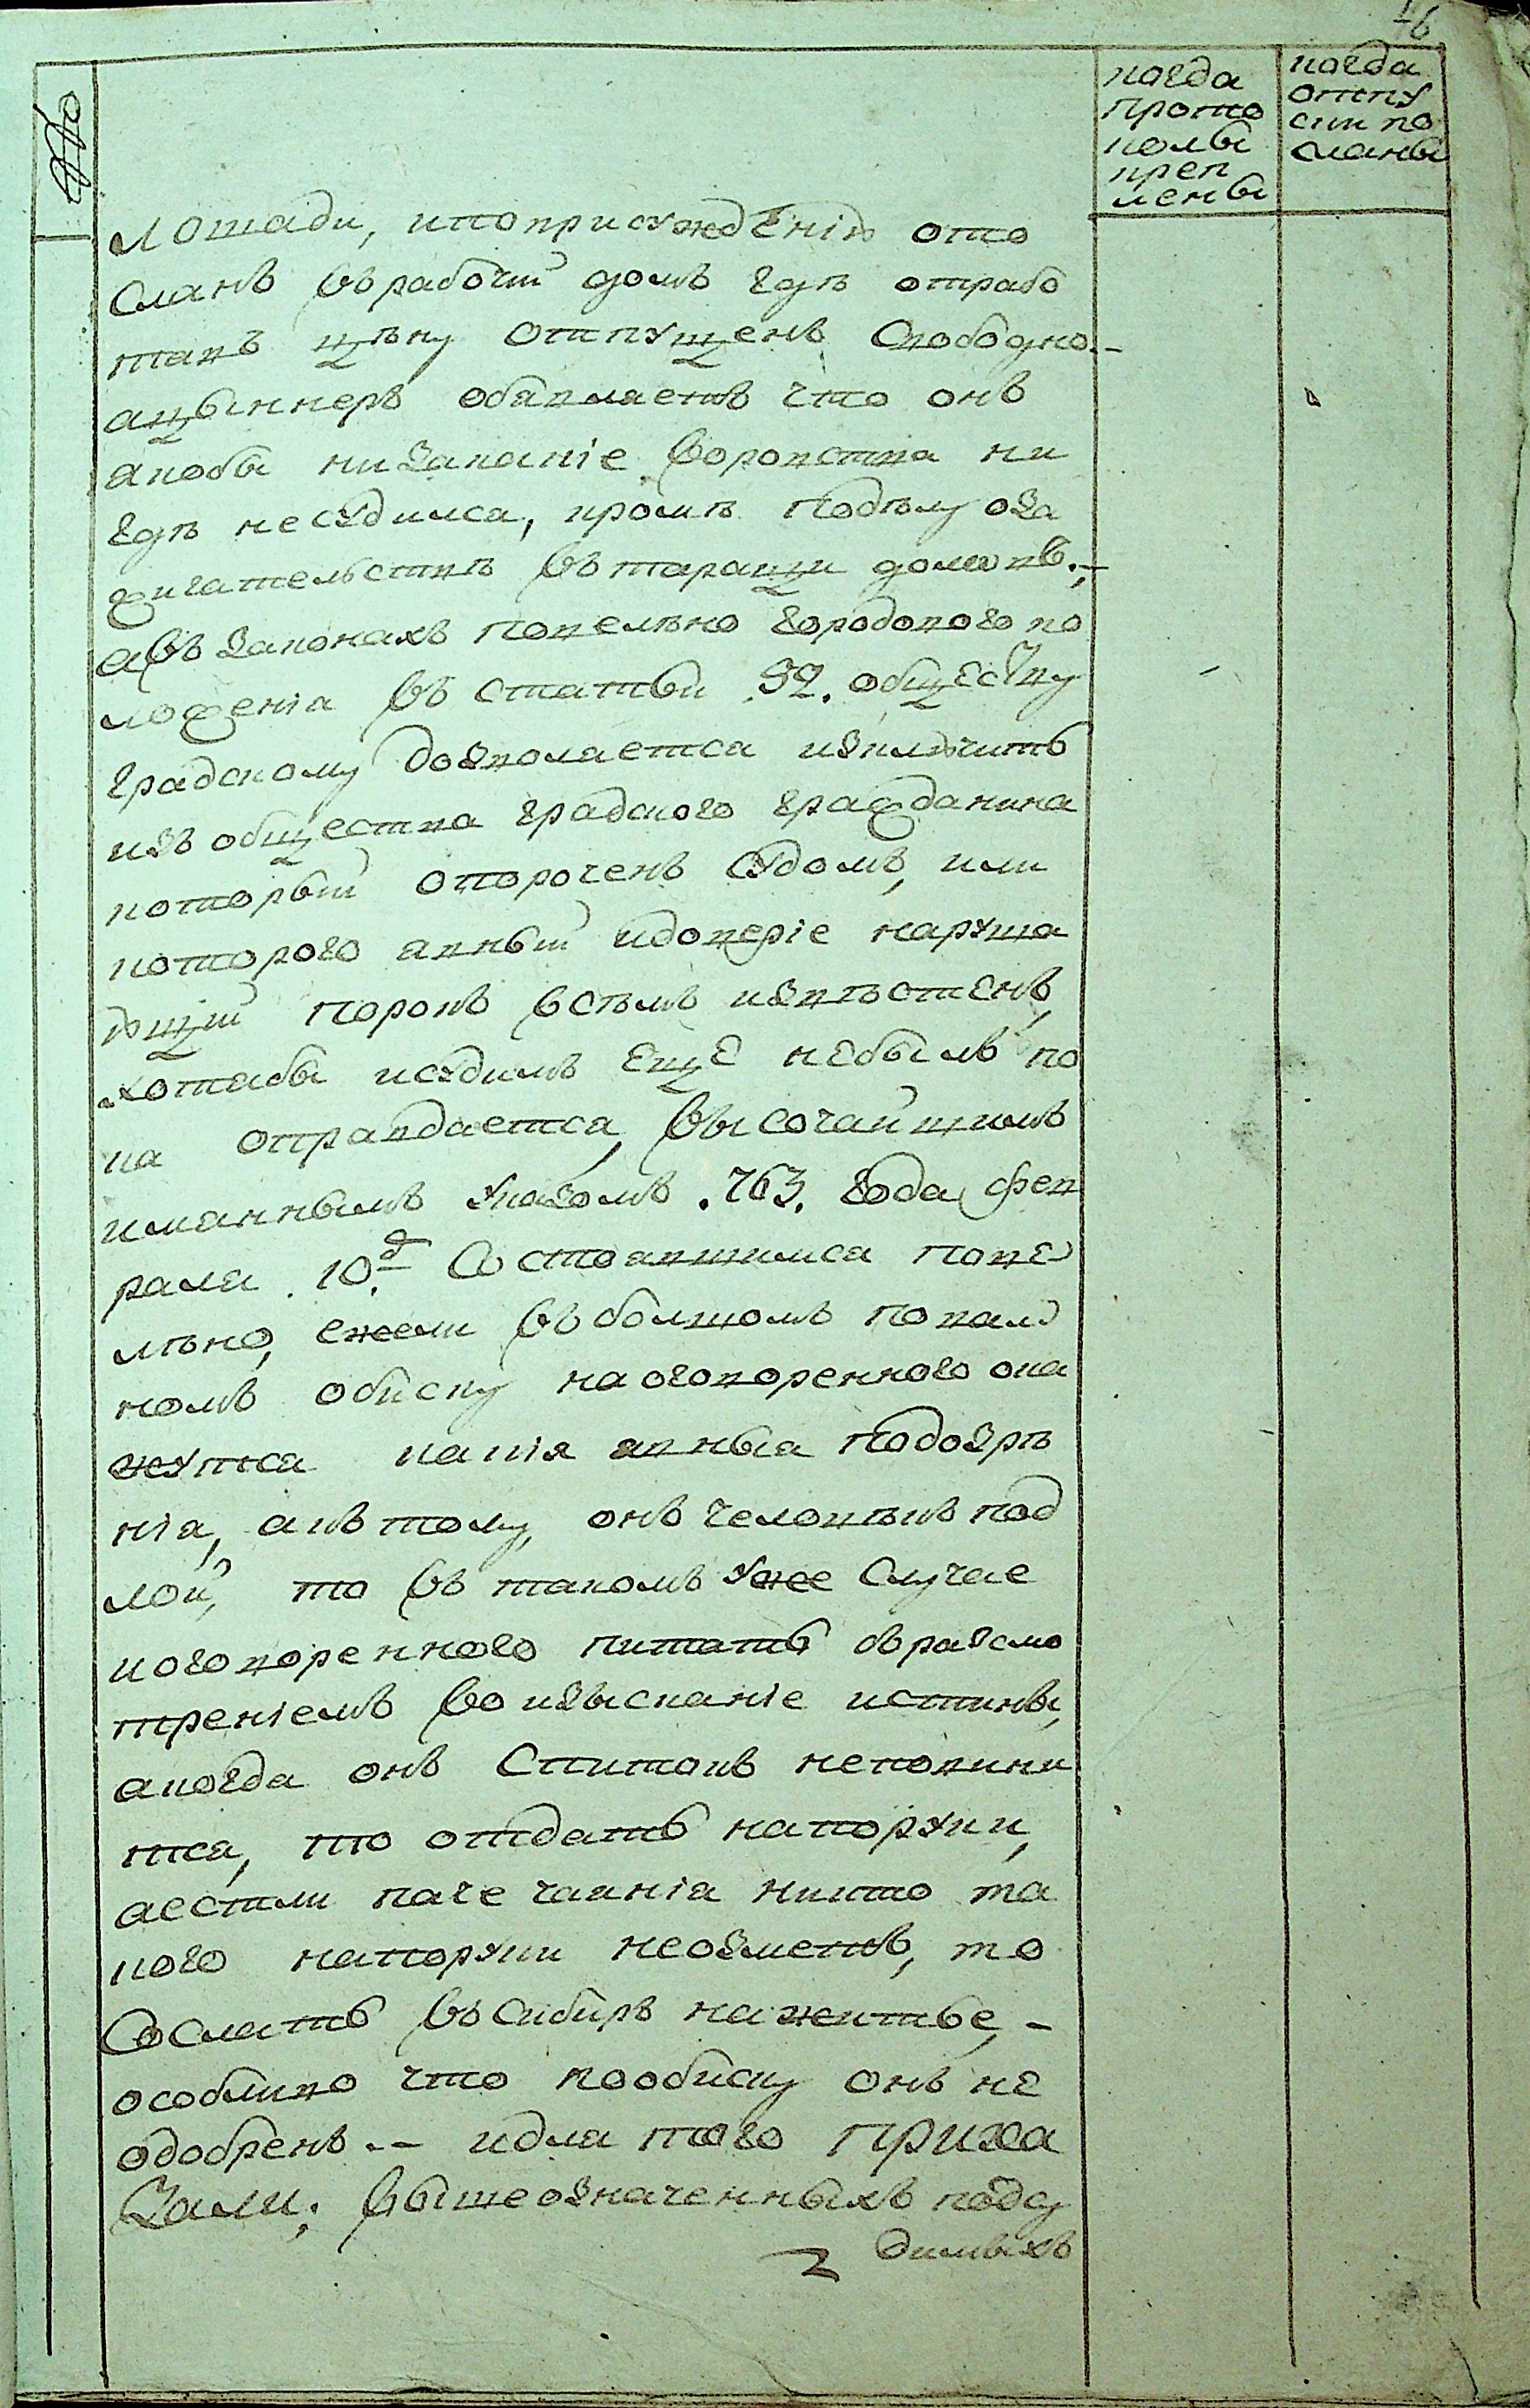 16
когда
прото
колы
креп
лены
когда
отпу
ски по
сланы
лошади, ипоприсуждѣнію ото
сланъ врабочій домъ гдѣ отрабо
тавъ цѣну отпущенъ свободно.–
анынперь объявляетъ что онъ
якобы низакакіе воровства ни
гдѣ несудился, кромѣ подѣлу оза
жигательствѣ вътаракци домовъ.,–
авъ законахъ повелѣно городового по
ложенія въ статьи 92. обществу
градскому дозволяется изключить
изъ общества градского гражданина
который опороченъ судомъ, или
которого явный идовѣріе наруша
ющій порокъ всѣмъ извѣстенъ,
хотябы исудимъ еще небылъ по
ка оправдается, высочайшимъ
имяннымъ указомъ .763. года фев
раля .10.д состоявшимся пове
лѣно, ежели въбольшомъ поваль
номъ обыску наоговоренного ока
жутся какія явныя подозрѣ
нія, акътому, онъ человѣкъ под
лой, то въ такомъ уже случае
иоговоренного пытать съразсмо
треніемъ воизысканіе истины,
акогда онъ спытокъ неповини
тся, то отдать напоруки,
аестли паче чаянія никто та
кого напоруки невозметъ, то
сослать въсибирь нажитье, –
особливо что пообыску онъ не
одобренъ .– идля того прика
зали: вышеозначенныхъ подсу
димыхъ